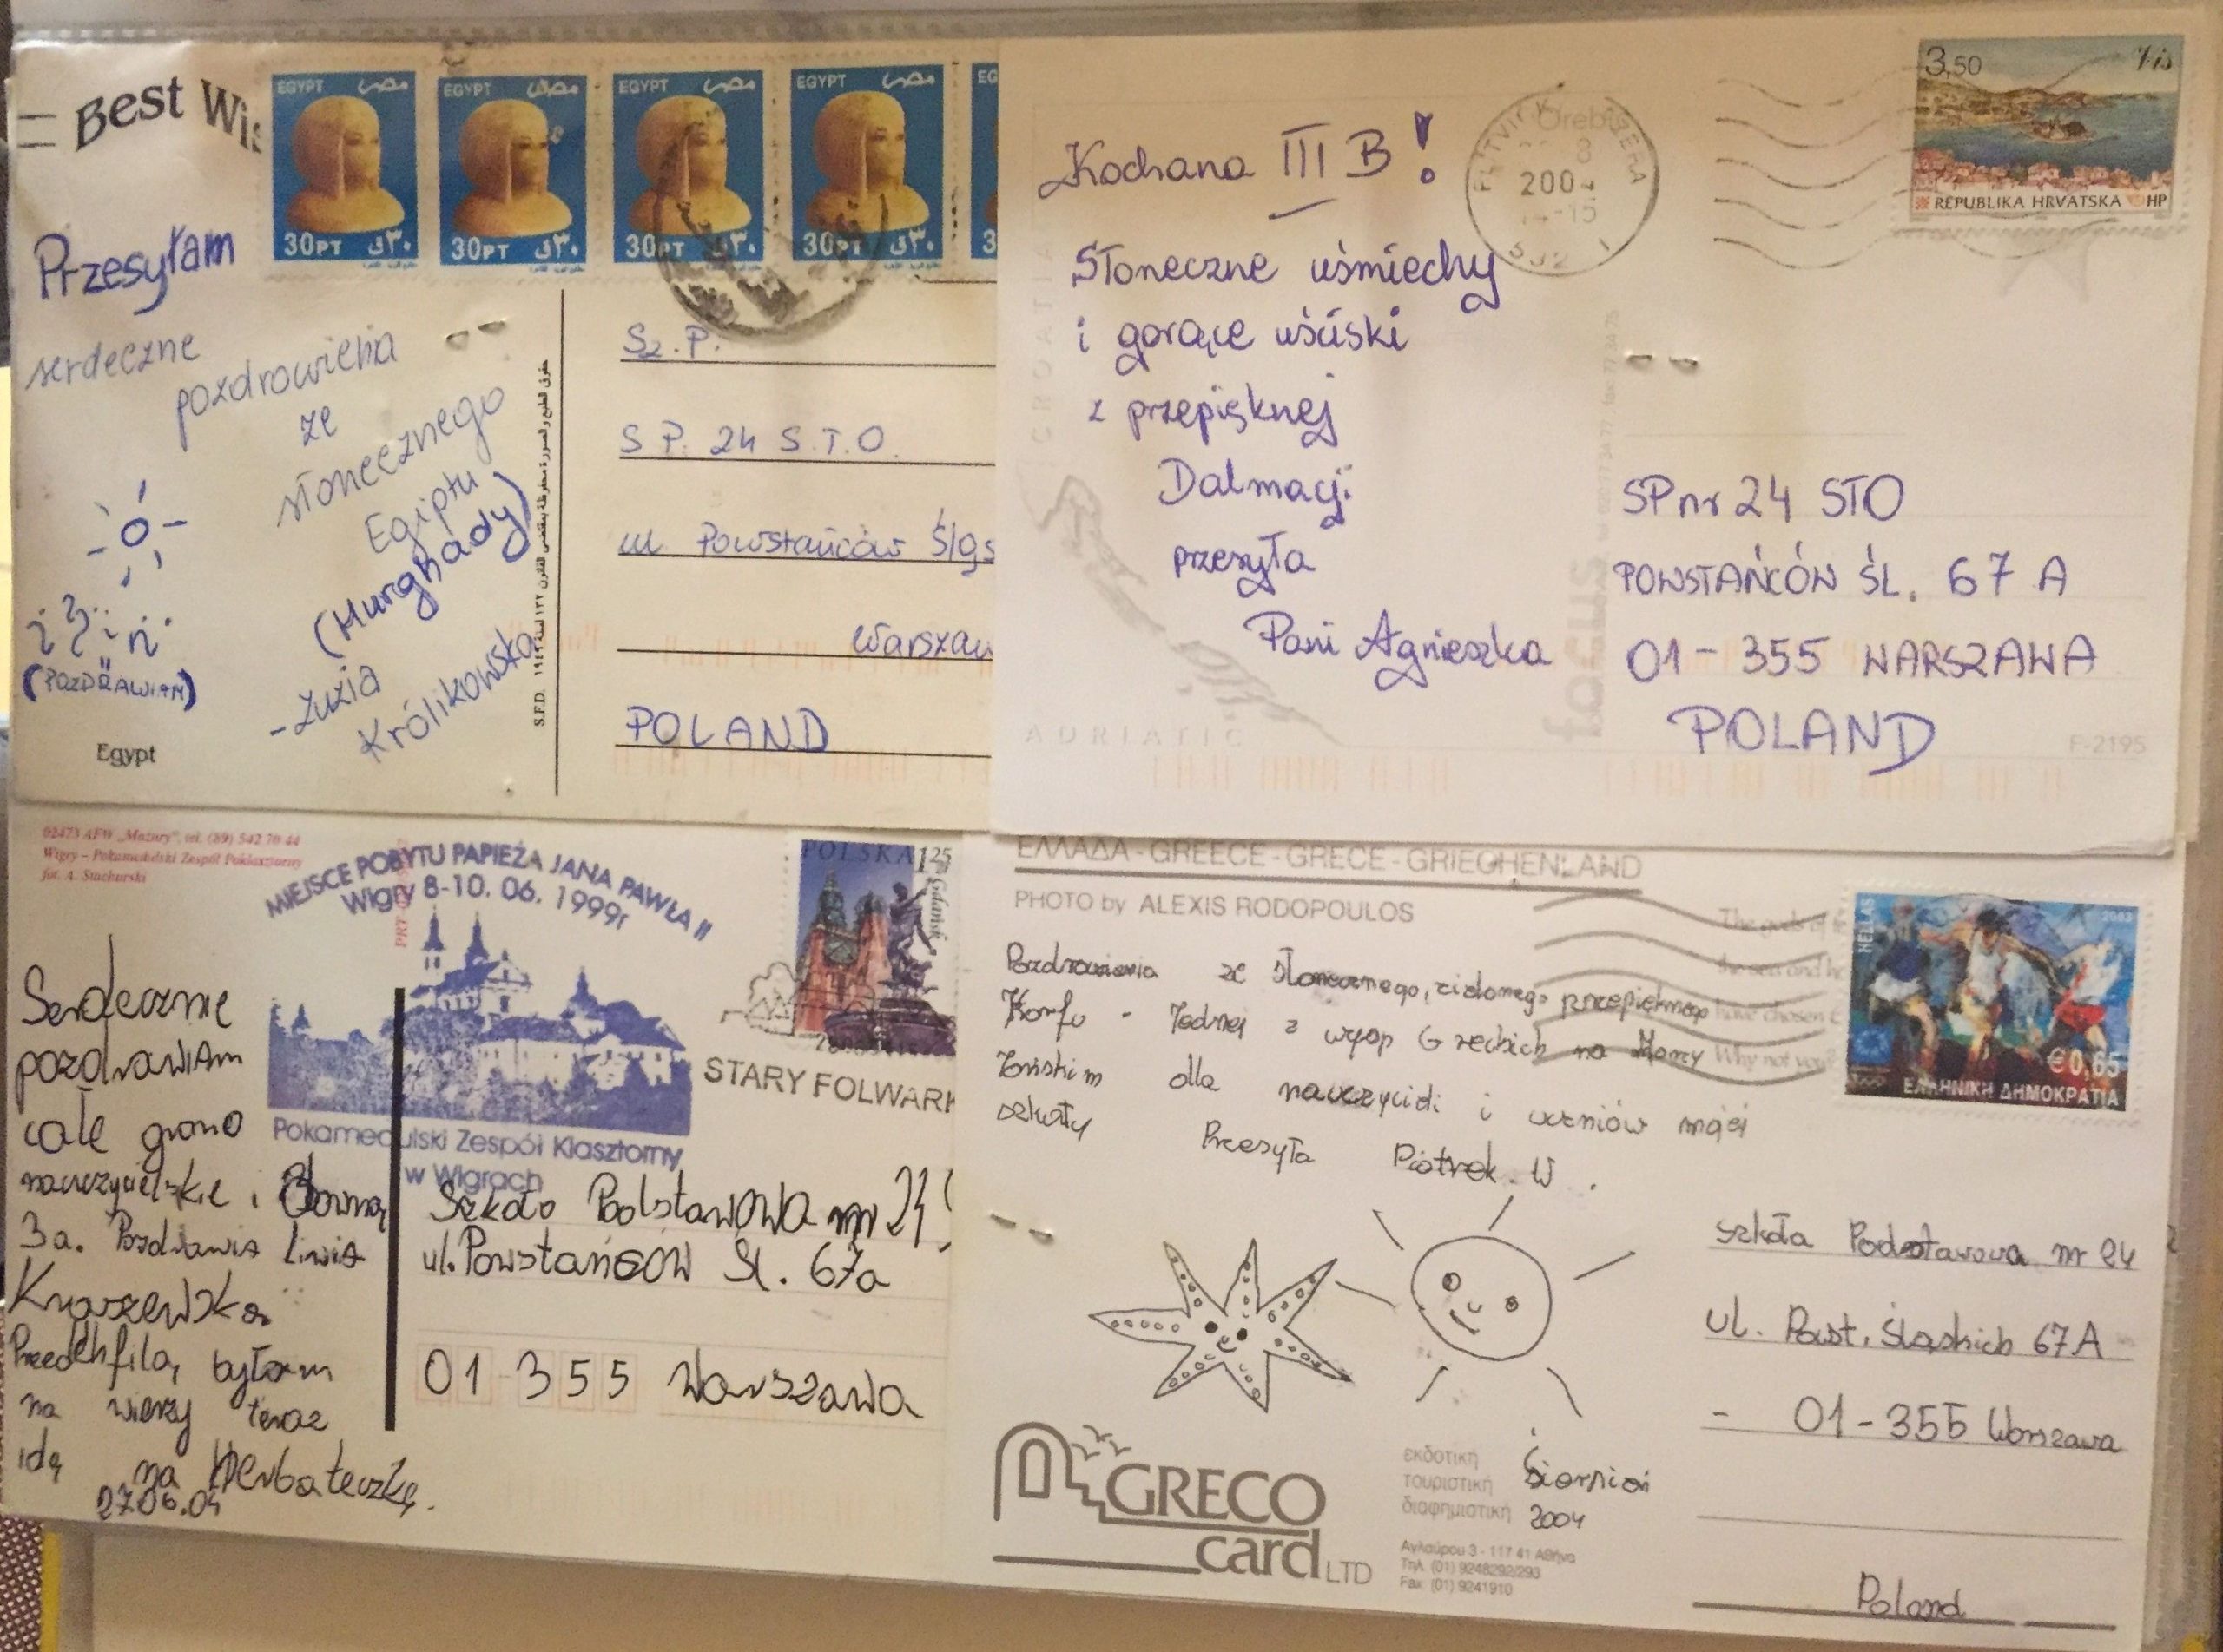 Best Wis
EGYPT مصر
30PT ٣٠ق
EGYPT مصر
30PT ٣٠ق
EGYPT مصر
30PT ٣٠ق
EGYPT مصر
30PT ٣٠ق
EG
3
Przesyłam
serdeczne
pozdrowienia
ze
słonecznego
Egiptu
(Hurghady)
(POZDRAWIAM)
-Zuzia
Królikowska
Egypt
S.F.D.
Sz. P.
S P. 24 S.T.O.
ul Powstańców Śląs
Warszaw
POLAND
Kochana III B!
Słoneczne uśmiechy
i gorące uściski
z przepięknej
Dalmacji
przesyła
Pani Agnieszka
2004
3,50 Vis
REPUBLIKA HRVATSKA HP
CROATIA
ADRIATIC
focus
SP nr 24 STO
POWSTAŃCÓW ŚL. 67 A
01-355 WARSZAWA
POLAND
F-2195
02473 AFW „Mazury", tel. (89) 542 70 44
Wigry – Pokamedulski Zespół Poklasztorny
fot. A. Stachurski
MIEJSCE POBYTU PAPIEŻA JANA PAWŁA II
Wigry 8-10. 06. 1999r
Pokamedulski Zespół Klasztorny
w Wigrach
POLSKA 125
Gdańsk
STARY FOLWARK
Serdecznie
pozdrawiam
całe grono
nauczycielskie i
3a. Pozdrawia Liwia
Kraszewska
Przed chfilą byłam
na wierzy teraz
idę na Herbateczkę.
27.06.04
Szkoło Podstawowa nr 24
ul. Powstańców Śl. 67a
01-355 Warszawa
ΕΛΛΑΔΑ - GREECE - GRECE - GRIECHENLAND
PHOTO by ALEXIS RODOPOULOS
The gods of
the sea and
have chosen
Why not you?
HELLAS
2003
€0,65
ΕΛΛΗΝΙΚΗ ΔΗΜΟΚΡΑΤΙΑ
Pozdrowienia ze słonecznego, zielonego przepięknego
Korfu - Jednej z wysp Greckich na Morzy
Jońskim dla nauczycieli i uczniów mojei
szkoły Przesyła Piotrek. W.
szkoła Podstawowa nr 24
ul. Powst. Śląskich 67A
- 01-355 Warszawa
Poland
GRECO
card LTD
εκδοτική
τουριστική
διαφημιστική
Σierpień
2004
Αγλαύρου 3 - 117 41 Αθήνα
Τηλ. (01) 9248292/293
Fax: (01) 9241910